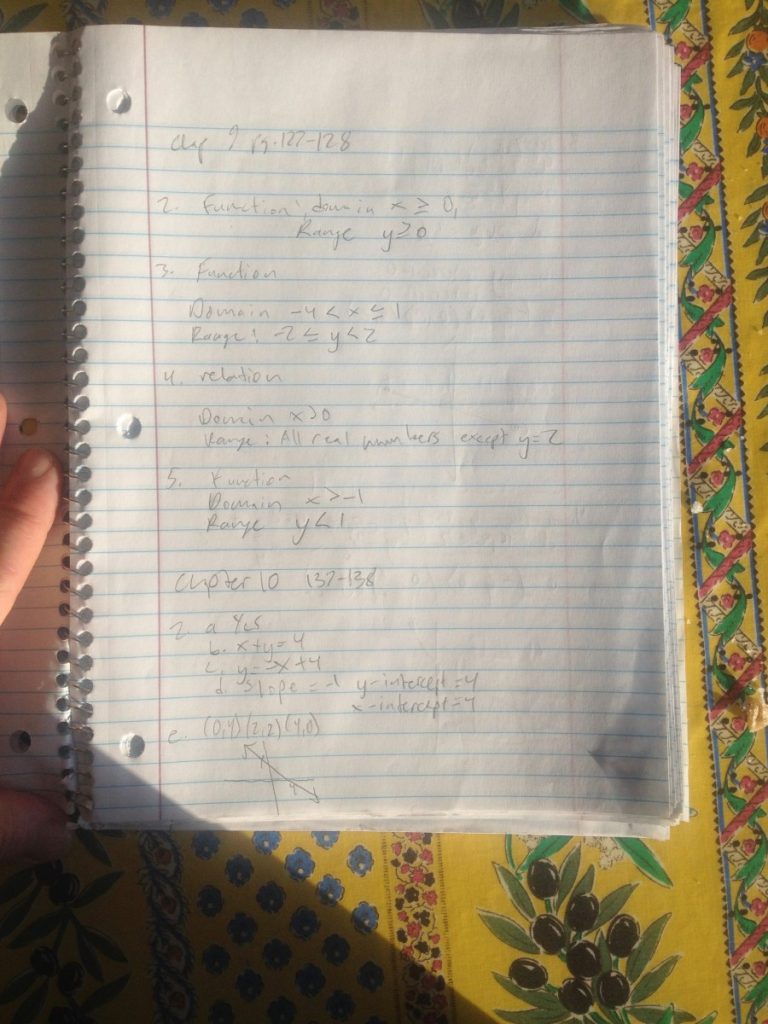 Chap 9 pg. 127-128
2. Function: domain x ≥ 0,
Range y ≥ 0
3. Function
Domain -4 < x ≤ 1
Range: -2 ≤ y < 2
4. relation
Domain x > 0
Range: All real numbers except y = 2
5. Function
Domain x > -1
Range y < 1
Chapter 10 137-138
2. a. Yes
b. x + y = 4
c. y = -x + 4
d. slope = -1 y-intercept = 4
x-intercept = 4
e. (0,4) (2,2) (4,0)